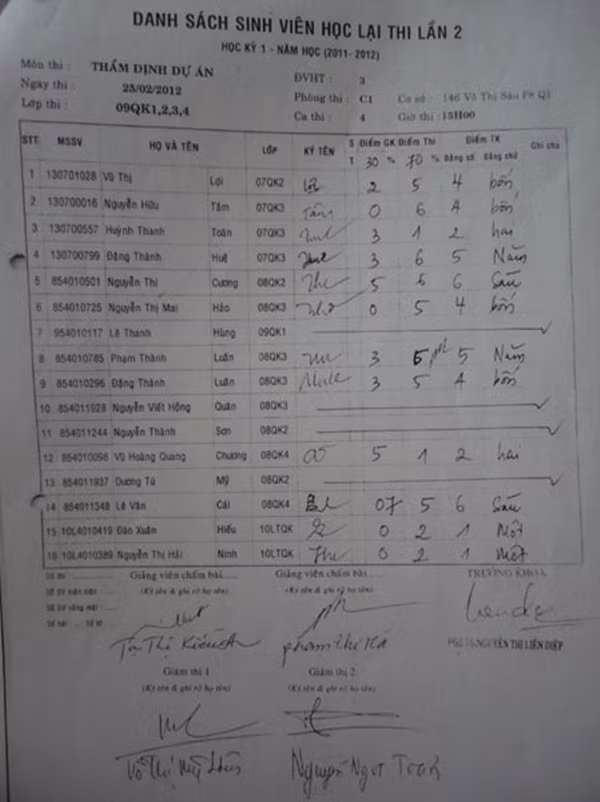 DANH SÁCH SINH VIÊN HỌC LẠI THI LẦN 2
HỌC KỲ 1 - NĂM HỌC (2011- 2012)
Môn thi : THẨM ĐỊNH DỰ ÁN ĐVHT : 3
Ngày thi : 25/02/2012 Phòng thi : C1 Cơ sở : 146 Võ Thị Sáu P8 Q3
Lớp thi : 09QK1,2,3,4 Ca thi : 4 Giờ thi : 15H00
STT MSSV HỌ VÀ TÊN LỚP KÝ TÊN S T Điểm GK 30 % Điểm Thi 70 % Điểm TK Bằng số Bằng chữ Ghi chú
1 130701028 Vũ Thị Lợi 07QK2 2 5 4 bốn
2 130700016 Nguyễn Hữu Tâm 07QK3 Tâm 0 6 4 bốn
3 130700557 Huỳnh Thanh Toàn 07QK3 3 1 2 hai
4 130700799 Đặng Thành Huê 07QK3 3 6 5 Năm
5 854010501 Nguyễn Thị Cương 08QK2 5 6 6 Sáu
6 854010725 Nguyễn Thị Mai Hảo 08QK3 0 5 4 bốn
7 954010117 Lê Thanh Hùng 09QK1
8 854010785 Phạm Thành Luân 08QK3 3 5 5 Năm
9 854010296 Đặng Thành Luân 08QK3 3 5 4 bốn
10 854011928 Nguyễn Viết Hồng Quân 08QK3
11 854011244 Nguyễn Thành Sơn 08QK2
12 854010098 Vũ Hoàng Quang Chương 08QK4 5 1 2 hai
13 854011937 Dương Tú Mỹ 08QK2
14 854011348 Lê Văn Cái 08QK4 07 5 6 Sáu
15 10L4010419 Đào Xuân Hiếu 10LTQK 0 2 1 Một
16 10L4010389 Nguyễn Thị Hải Ninh 10LTQK 0 2 1 Một
Giảng viên chấm bài..... Giảng viên chấm bài..... TRƯỞNG KHOA
(Ký tên & ghi rõ họ tên) (Ký tên & ghi rõ họ tên)
Phạm Thị Hà NGUYỄN THỊ LIÊN DIỆP
Giám thị 1 Giám thị 2
(Ký tên & ghi rõ họ tên) (Ký tên & ghi rõ họ tên)
Võ Thị Mỹ Nguyễn Ngọc